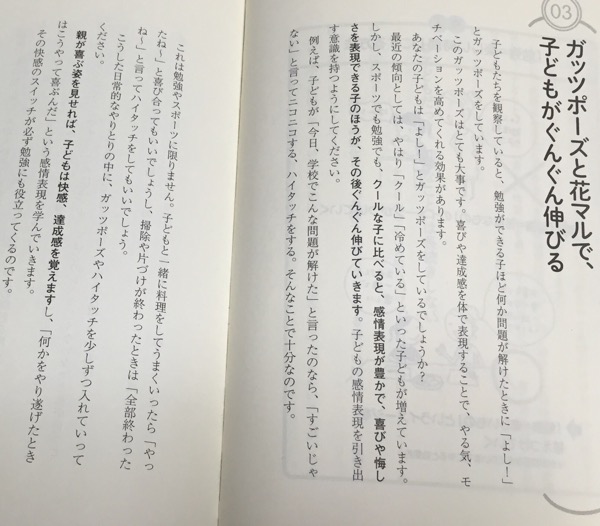 03
ガッツポーズと花マルで、
子どもがぐんぐん伸びる
子どもたちを観察していると、勉強ができる子ほど何か問題が解けたときに「よし！」
とガッツポーズをしています。
このガッツポーズはとても大事です。喜びや達成感を体で表現することで、やる気、モ
チベーションを高めてくれる効果があります。
あなたの子どもは「よし！」とガッツポーズをしているでしょうか？
最近の傾向としては、やはり「クール」「冷めている」といった子どもが増えています。
しかし、スポーツでも勉強でも、クールな子に比べると、感情表現が豊かで、喜びや悔し
さを表現できる子のほうが、その後ぐんぐん伸びていきます。子どもの感情表現を引き出
す意識を持つようにしてください。
例えば、子どもが「今日、学校でこんな問題が解けた」と言ったのなら、「すごいじゃ
ない」と言ってニコニコする、ハイタッチをする。そんなことで十分なのです。
これは勉強やスポーツに限りません。子どもと一緒に料理をしてうまくいったら「やっ
たね〜」と喜び合ってもいいでしょうし、掃除や片づけが終わったときは「全部終わった
ね〜」と言ってハイタッチをしてもいいでしょう。
こうした日常的なやりとりの中に、ガッツポーズやハイタッチを少しずつ入れていって
ください。
親が喜ぶ姿を見せれば、子どもは快感、達成感を覚えますし、「何かをやり遂げたとき
はこうやって喜ぶんだ」という感情表現を学んでいきます。
その快感のスイッチが必ず勉強にも役立ってくるのです。